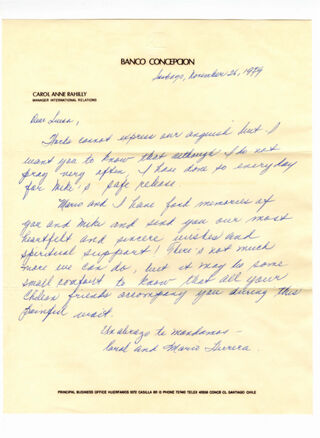 BANCO CONCEPCION
Santiago, November 26, 1979
CAROL ANNE RAHILLY
MANAGER INTERNATIONAL RELATIONS
Dear Luisa,
Words cannot express our anguish but I
want you to know that although I do not
pray very often, I have done so everyday
for Mike's safe release.
Mario and I have fond memories of
you and Mike and send you our most
heartfelt and sincere wishes and
spiritual support! There's not much
more we can do, but it may be some
small comfort to know that all your
Chilean friends accompany you during this
painful wait.
Un abrazo te mandamos -
Carol and Mario
PRINCIPAL BUSINESS OFFICE HUERFANOS 1072 CASILLA 80 D PHONE TELEX CONCE CL SANTIAGO CHILE